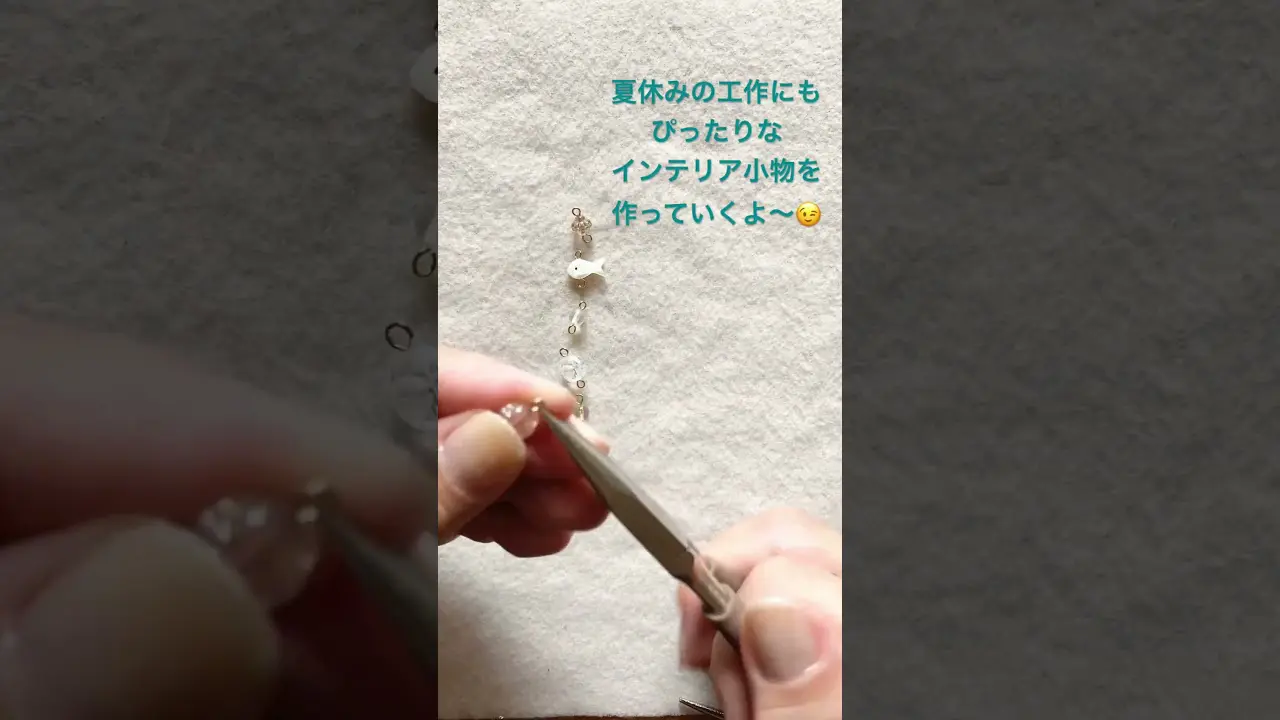 夏休みの工作にも
ぴったりな
インテリア小物を
作っていくよ〜😉